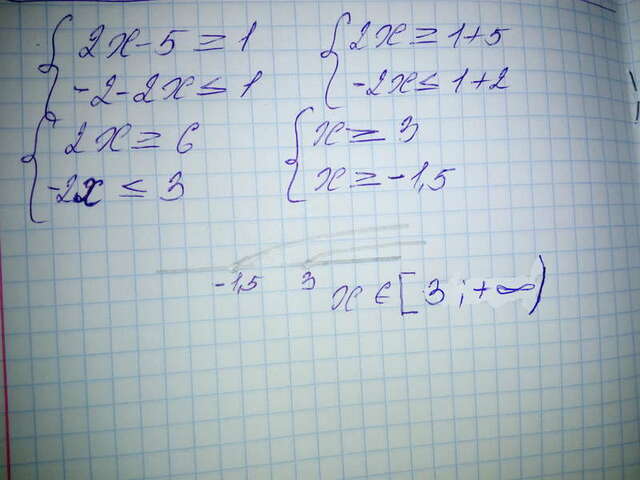 { 2x - 5 ≥ 1
-2 - 2x ≤ 1
{ 2x ≥ 1 + 5
-2x ≤ 1 + 2
{ 2x ≥ 6
-2x ≤ 3
{ x ≥ 3
x ≥ -1,5
-1,5 3
x ∈ [3; +∞)